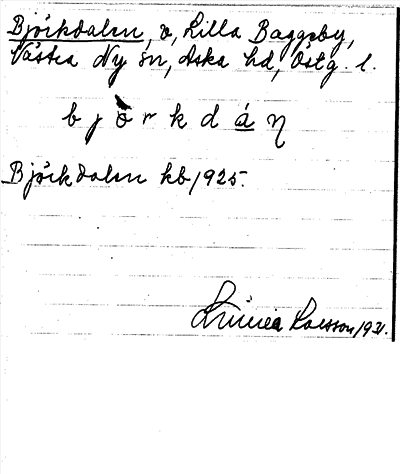 Björkdalen, v, Lilla Baggeby,
Västra Ny sn, Aska hd, Östg. l.
b j ö̀ r k d á ŋ
Björkdalen kb 1925.
Linnéa Larsson 1931.